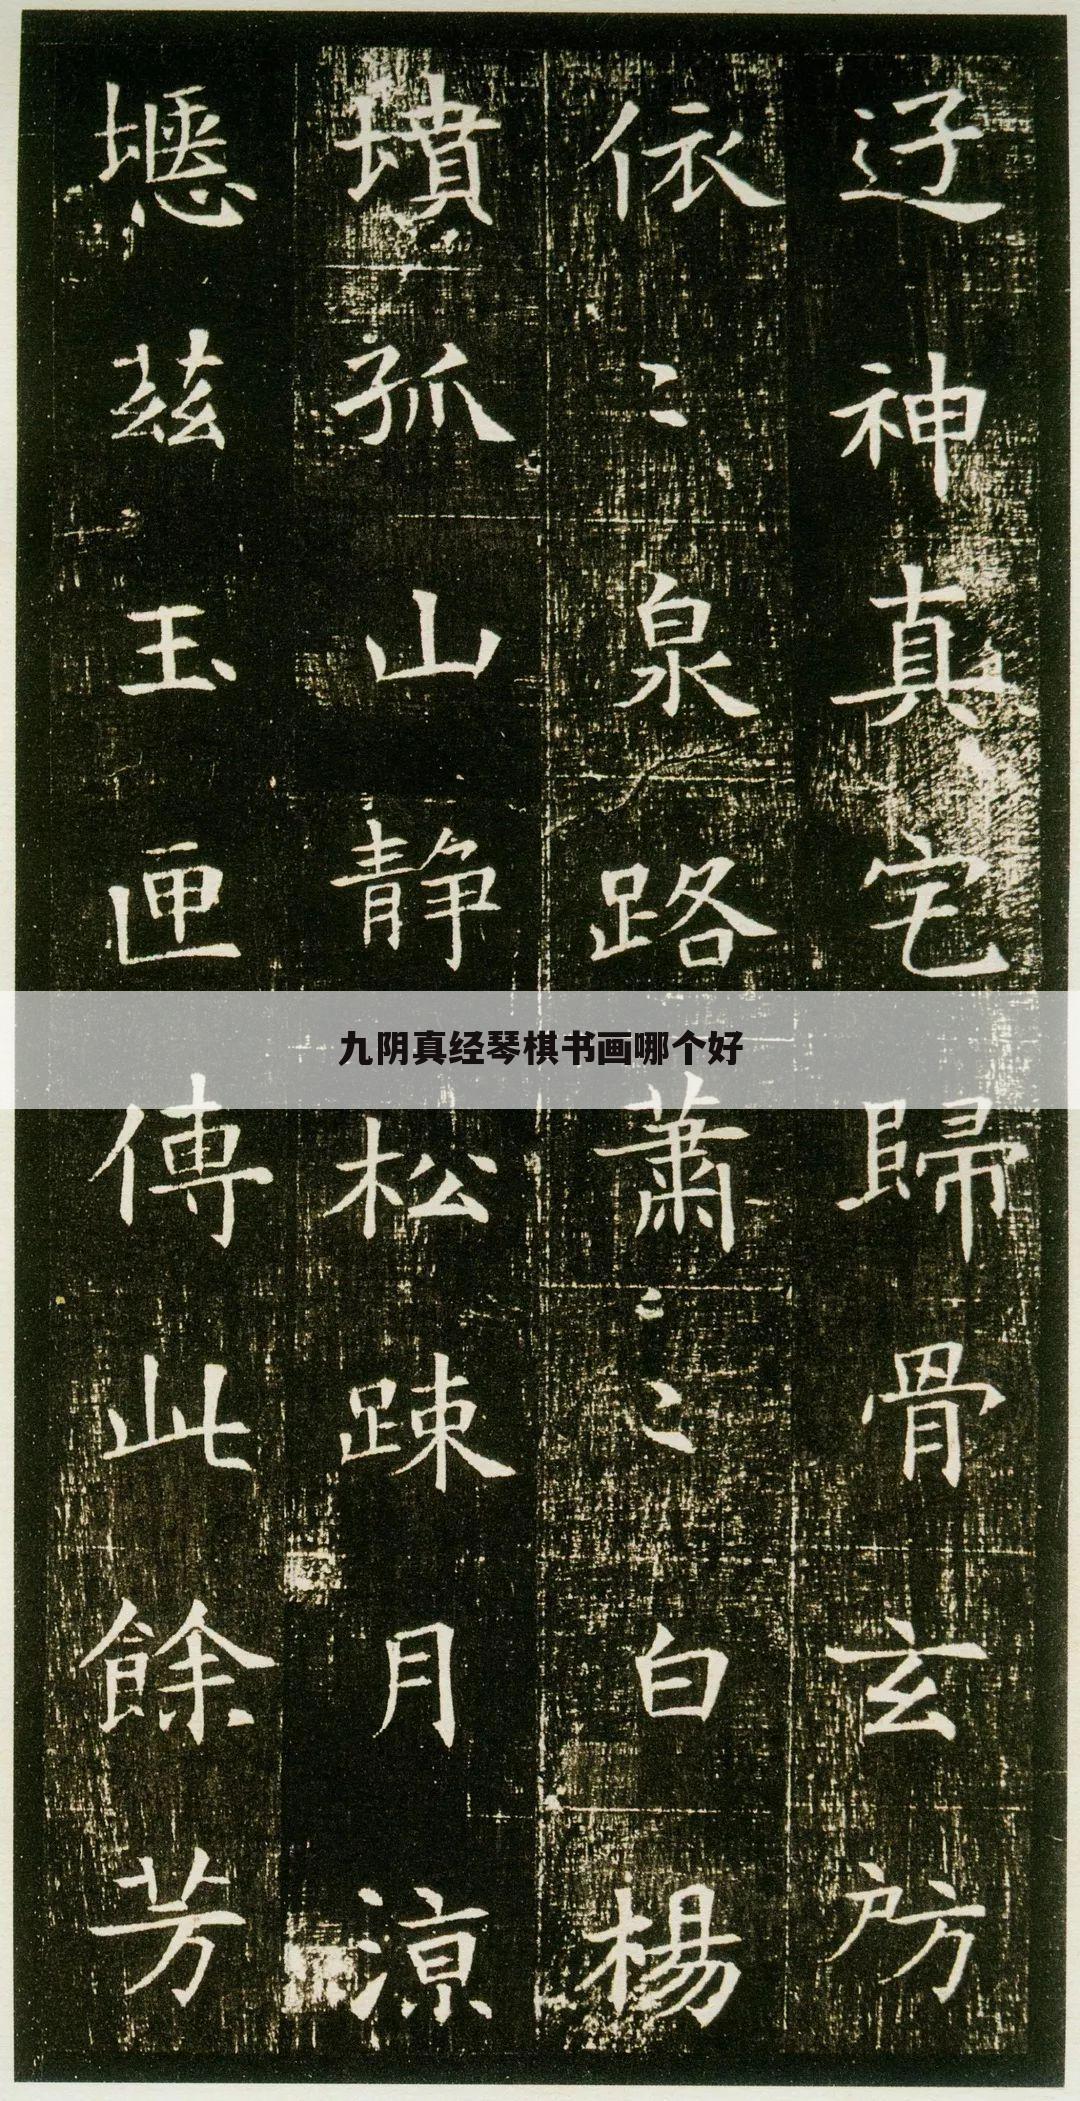 遊神真宅歸骨玄房
依〻泉路蕭〻白楊
墳孤山静松踈月涼
瘞茲玉匣傳此餘芳
九阴真经琴棋书画哪个好